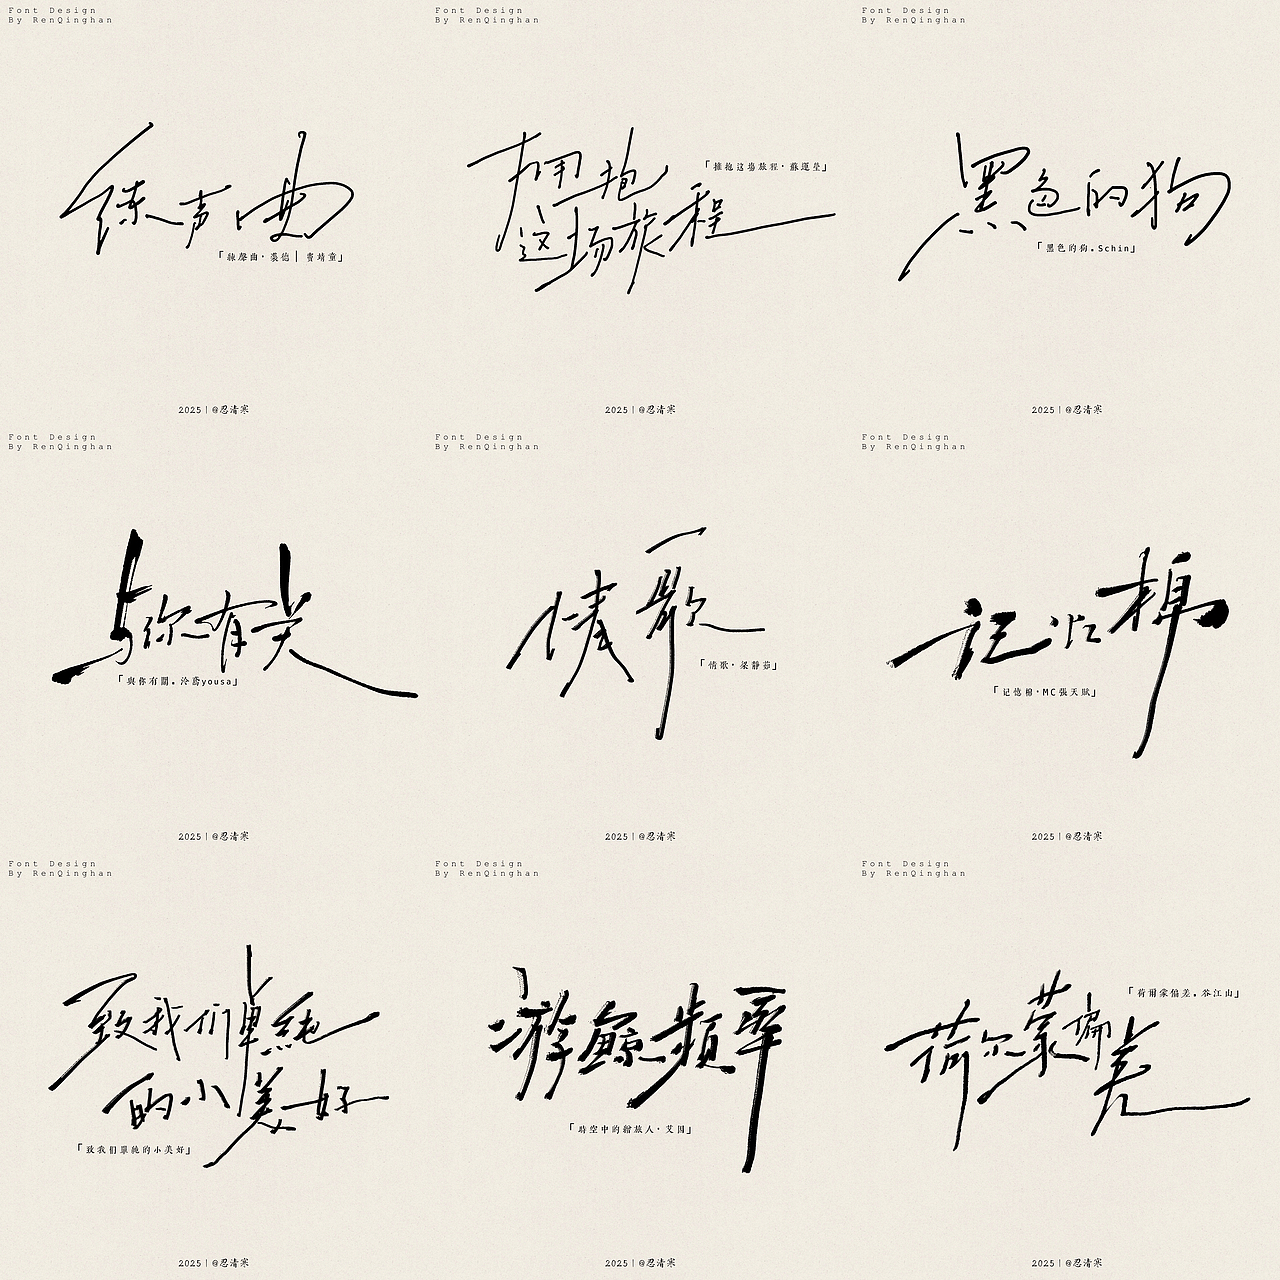 Font Design
By RenQinghan
练声曲
「練聲曲·裘德｜費靖童」
2025 | @忍清寒
Font Design
By RenQinghan
拥抱
这场旅程
「擁抱这場旅程·蘇運瑩」
2025 | @忍清寒
Font Design
By RenQinghan
黑色的狗
「黑色的狗.Schin」
2025 | @忍清寒
Font Design
By RenQinghan
与你有关
「與你有關.泠鳶yousa」
2025 | @忍清寒
Font Design
By RenQinghan
情歌
「情歌·梁静茹」
2025 | @忍清寒
Font Design
By RenQinghan
记忆棉
「记憶棉·MC張天賦」
2025 | @忍清寒
Font Design
By RenQinghan
致我们単純
的小美好
「致我们單純的小美好」
2025 | @忍清寒
Font Design
By RenQinghan
游鲸頻率
「時空中的繪旅人·艾因」
2025 | @忍清寒
Font Design
By RenQinghan
荷尔蒙偏差
「荷爾蒙偏差.谷江山」
2025 | @忍清寒